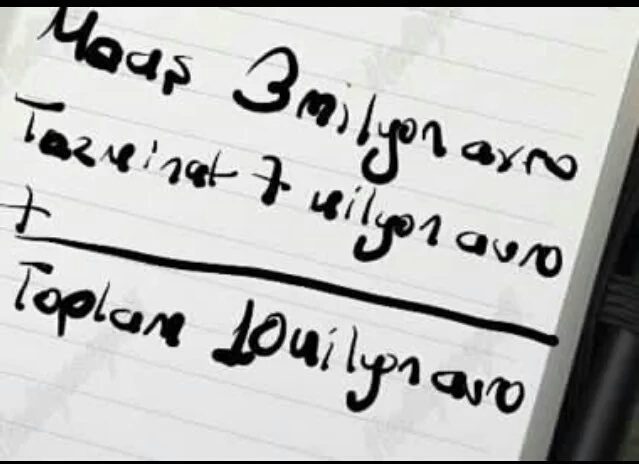 Maaş 3 milyon avro
Tazminat 7 milyon avro
+
Toplam 10 milyon avro